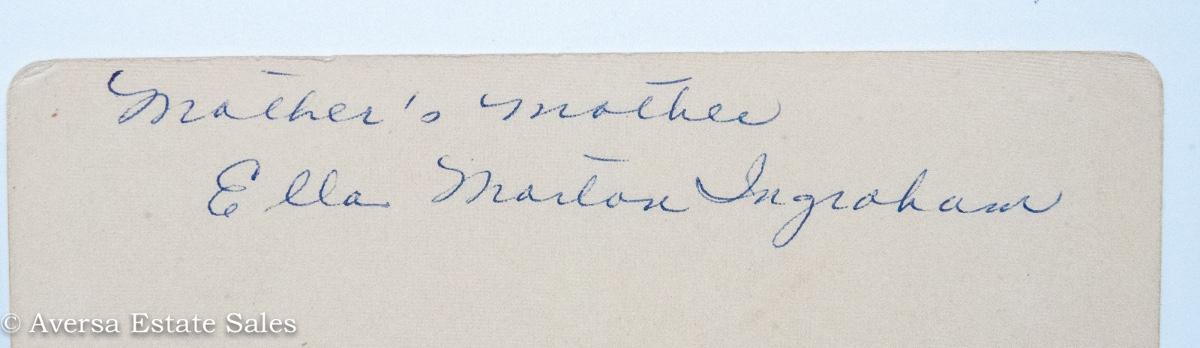 Mother's Mother
Ella Morton Ingraham
© Aversa Estate Sales